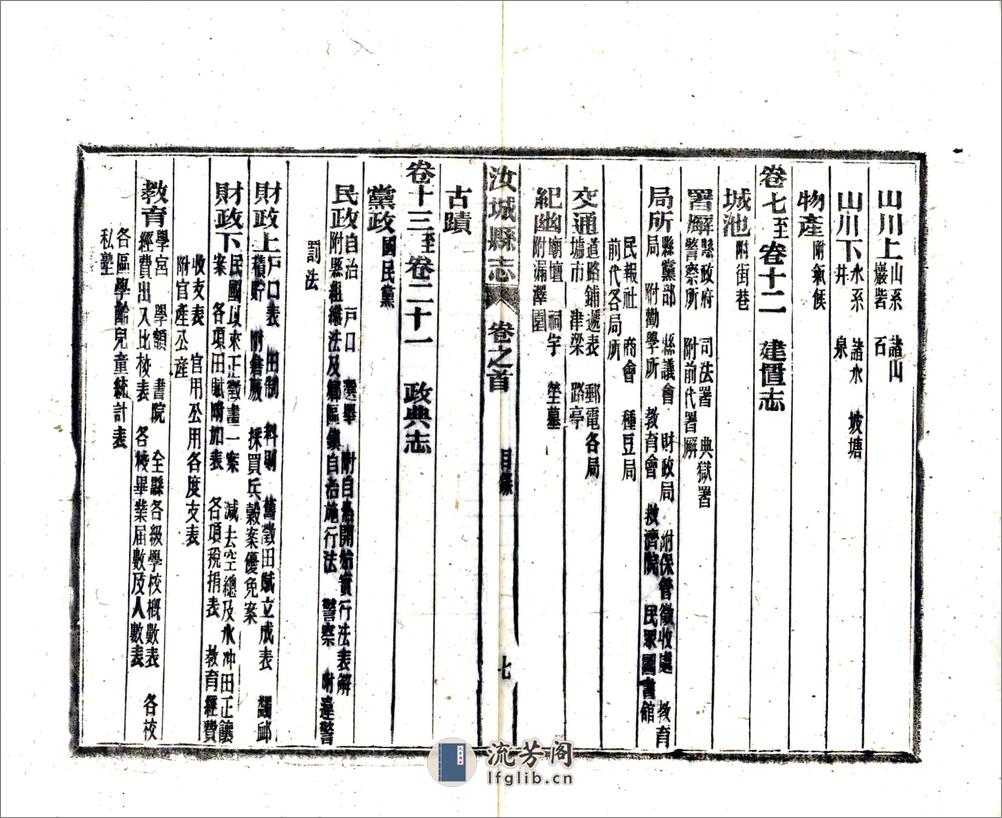 山川上 山系 諸山
巖砦 石
山川下 水系 諸水 坡塘
井 泉
物產 附氣候
卷七至卷十二 建置志
城池 附街巷
署廨 縣政府 司法署 典獄署
警察所 附前代署廨
局所 縣黨部 縣議會 財政局 附保管徵收處 教育
局 附勸學所 教育會 救濟院 民眾圖書館
民報社 商會 種豆局
前代各局所
交通 道路鋪遞表 郵電各局
墟市 津梁 路亭
祀幽 廟壇 祠宇 塋墓
附漏澤園
汝城縣志 卷之首 目錄 七
古蹟
卷十三至卷二十一 政典志
黨政 國民黨
民政 自治 戶口 選舉 附自治開始實行法表解
附縣組織法及鄉區鎮自治施行法 警察 附違警
罰法
財政上 戶口表 田制 科則 舊徵田賦立成表 蠲卹
積貯 附倉廒 採買兵穀案優免案
財政下 民國以來正雜畫一案 減去空總及水沖田正餉
案 各項田賦附加表 各項稅捐表 教育經費
收支表 官用公用各度支表
附官產公產
教育 學宮 學額 書院 全縣各級學校概數表 各校
經費出入比較表 各校畢業屆數及人數表
各區學齡兒童統計表
私塾
流芳阁
lfglib.cn